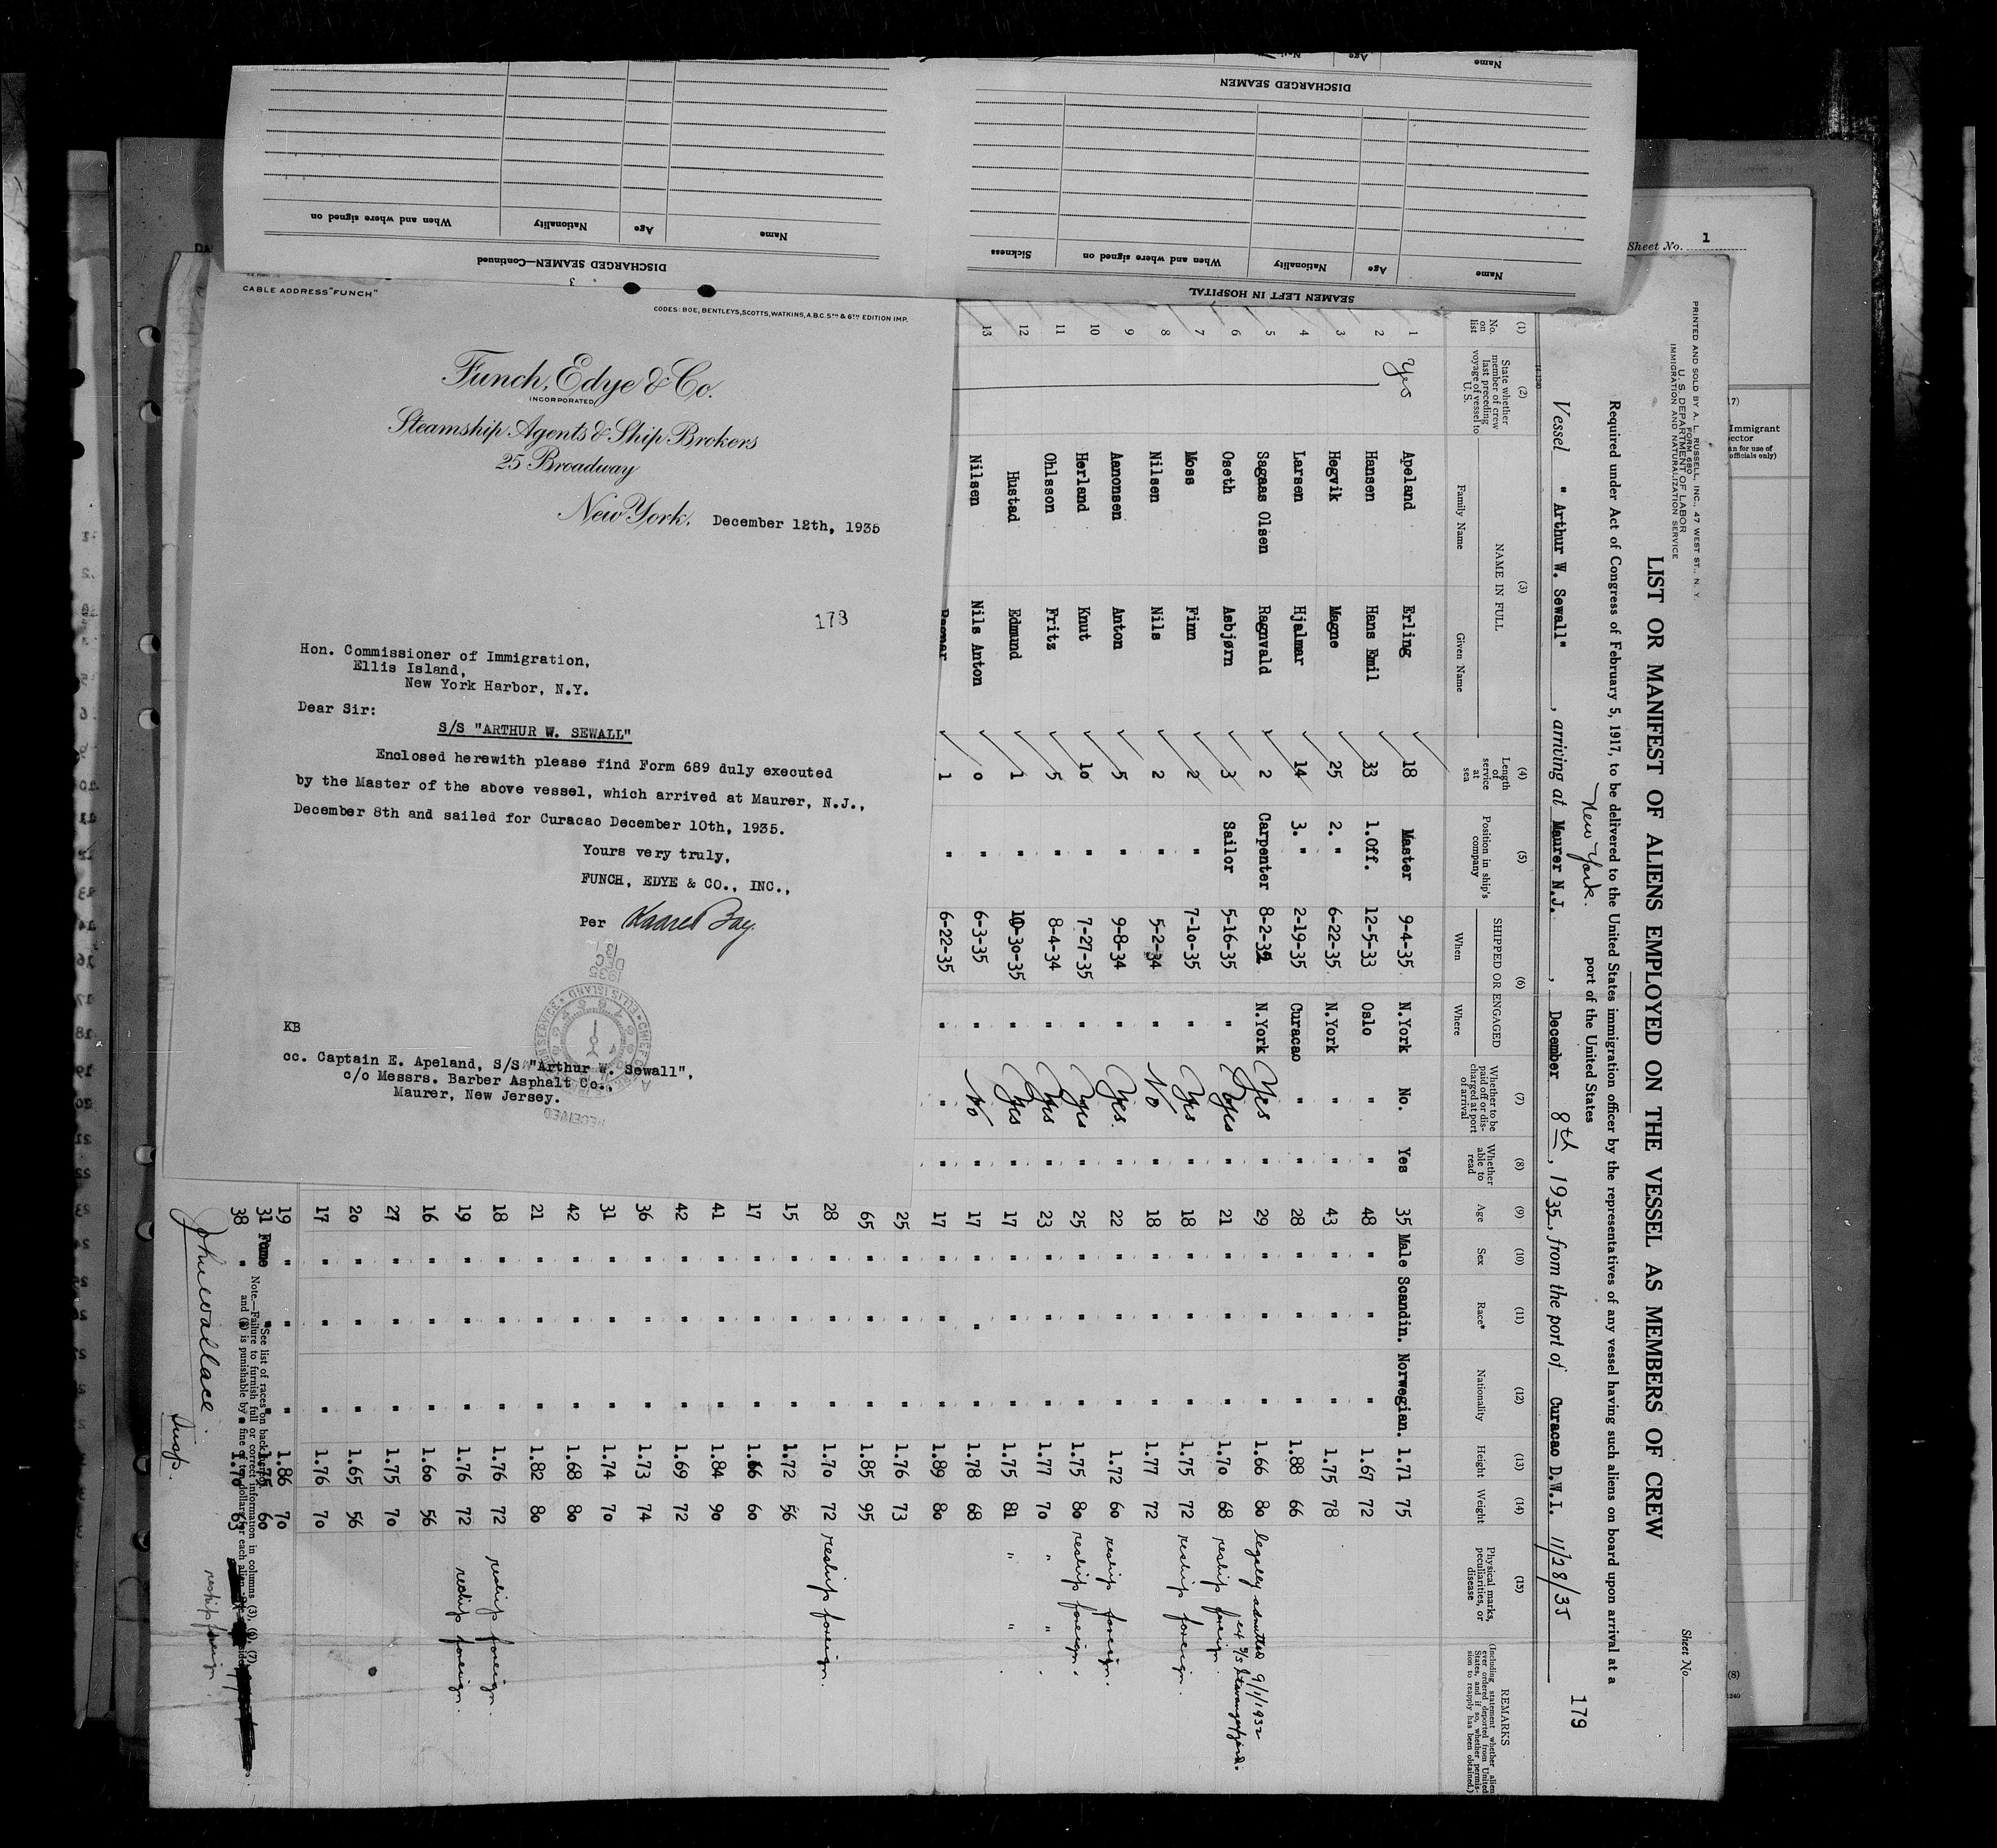 Name Age Name
DISCHARGED SEAMEN
When and where signed on Nationality Age Name
DISCHARGED SEAMEN—Continued
3
Sickness When and where signed on Nationality Age Name
SEAMEN LEFT IN HOSPITAL
CABLE ADDRESS "FUNCH"
CODES: BOE, BENTLEYS, SCOTTS, WATKINS, A.B.C. 5TH & 6TH EDITION IMP.
Funch, Edye & Co.
INCORPORATED
Steamship Agents & Ship Brokers
25 Broadway
New York, December 12th, 1935
178
Hon. Commissioner of Immigration,
Ellis Island,
New York Harbor, N.Y.
Dear Sir:
S/S "ARTHUR W. SEWALL"
Enclosed herewith please find Form 689 duly executed
by the Master of the above vessel, which arrived at Maurer, N.J.,
December 8th and sailed for Curacao December 10th, 1935.
Yours very truly,
FUNCH, EDYE & CO., INC.,
Per
RECEIVED
DEC
1935
KB
cc. Captain E. Apeland, S/S "Arthur W. Sewall",
c/o Messrs. Barber Asphalt Co.,
Maurer, New Jersey.
Sheet No. 1
PRINTED AND SOLD BY A. L. RUSSELL, INC., 47 WEST ST., N. Y.
FORM 680
U. S. DEPARTMENT OF LABOR
IMMIGRATION AND NATURALIZATION SERVICE
Sheet No.
LIST OR MANIFEST OF ALIENS EMPLOYED ON THE VESSEL AS MEMBERS OF CREW
Required under Act of Congress of February 5, 1917, to be delivered to the United States immigration officer by the representatives of any vessel having such aliens on board upon arrival at a
port of the United States
New York.
179
Vessel "Arthur W. Sewall", arriving at Maurer N.J., December 8th, 1935, from the port of Curacao D.W.I. 11/28/35
(1) (2) (3) (4) (5) (6) (7) (8) (9) (10) (11) (12) (13) (14) (15)
No. on list
State whether member of crew last preceding voyage of vessel to U.S.
NAME IN FULL
Family Name Given Name
Length of service at sea
Position in ship's company
SHIPPED OR ENGAGED
When Where
Whether to be paid off or discharged at port of arrival
Whether able to read
Age Sex Race* Nationality Height Weight
Physical marks, peculiarities, or disease
REMARKS
(Including statement whether alien ever ordered deported from United States, and if so, whether permission to reapply has been obtained.)
1 Yes Apeland Erling 18 Master 9-4-35 N.York No. Yes 35 Male Scandin. Norwegian. 1.71 75
2 Hansen Hans Emil 33 1.Off. 12-5-33 Oslo " " 48 " " " 1.67 72
3 Hegvik Magne 25 2. " 6-22-35 N.York " " 43 " " " 1.75 78
4 Larsen Hjalmar 14 3. " 2-19-35 Curacao " " 28 " " " 1.88 66
5 Sagaas Olsen Ragnvald 2 Carpenter 8-2-32 N.York Yes " 29 " " " 1.66 80 legally admitted 9/1/1932 ex S/S Stavangerfjord.
6 Oseth Asbjørn 3 Sailor 5-16-35 " Yes " 21 " " " 1.70 68 reship foreign.
7 Moss Finn 2 " 7-10-35 " Yes " 18 " " " 1.75 72 reship foreign.
8 Nilsen Nils 2 " 5-2-34 " No " 18 " " " 1.77 72
9 Aanonsen Anton 5 " 9-8-34 " Yes. " 22 " " " 1.72 60 reship foreign.
10 Herland Knut 10 " 7-27-35 " Yes " 25 " " " 1.75 80 reship foreign.
11 Ohlsson Fritz 5 " 8-4-34 " Yes " 23 " " " 1.77 70 " "
12 Hustad Edmund 1 " 10-30-35 " Yes " 17 " " " 1.75 81 " "
13 Nilsen Nils Anton 0 " 6-3-35 " No " 17 " " " 1.78 68
Ragnar 1 " 6-22-35 " " " 17 " " " 1.89 80
25 " " " 1.76 73
65 " " " 1.85 95
28 " " " 1.70 72 reship foreign.
15 " " " 1.72 56
17 " " " 1.66 60
41 " " " 1.84 90
42 " " " 1.69 72
36 " " " 1.73 74
31 " " " 1.74 70
42 " " " 1.68 80
21 " " " 1.82 80
18 " " " 1.76 72 reship foreign.
19 " " " 1.76 72 reship foreign.
16 " " " 1.60 56
27 " " " 1.75 70
20 " " " 1.65 56
17 " " " 1.76 70
19 " " " 1.86 70
31 " " 1.75 60
38 " 1.70 63
*See list of races on back hereof.
Note.—Failure to furnish full or correct information in columns (3), (6), (7),
and is punishable by a fine of ten dollars for each alien
reship foreign.
John Wallace
Insp.